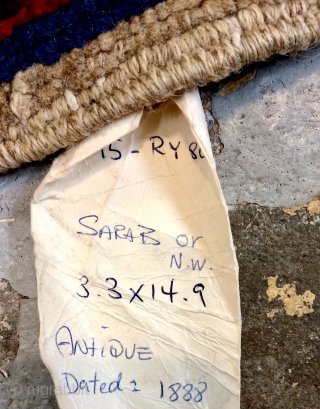 15-RY8
SARAB or
N.W.
3.3x14.9
ANTiQUE
Dated: 1888